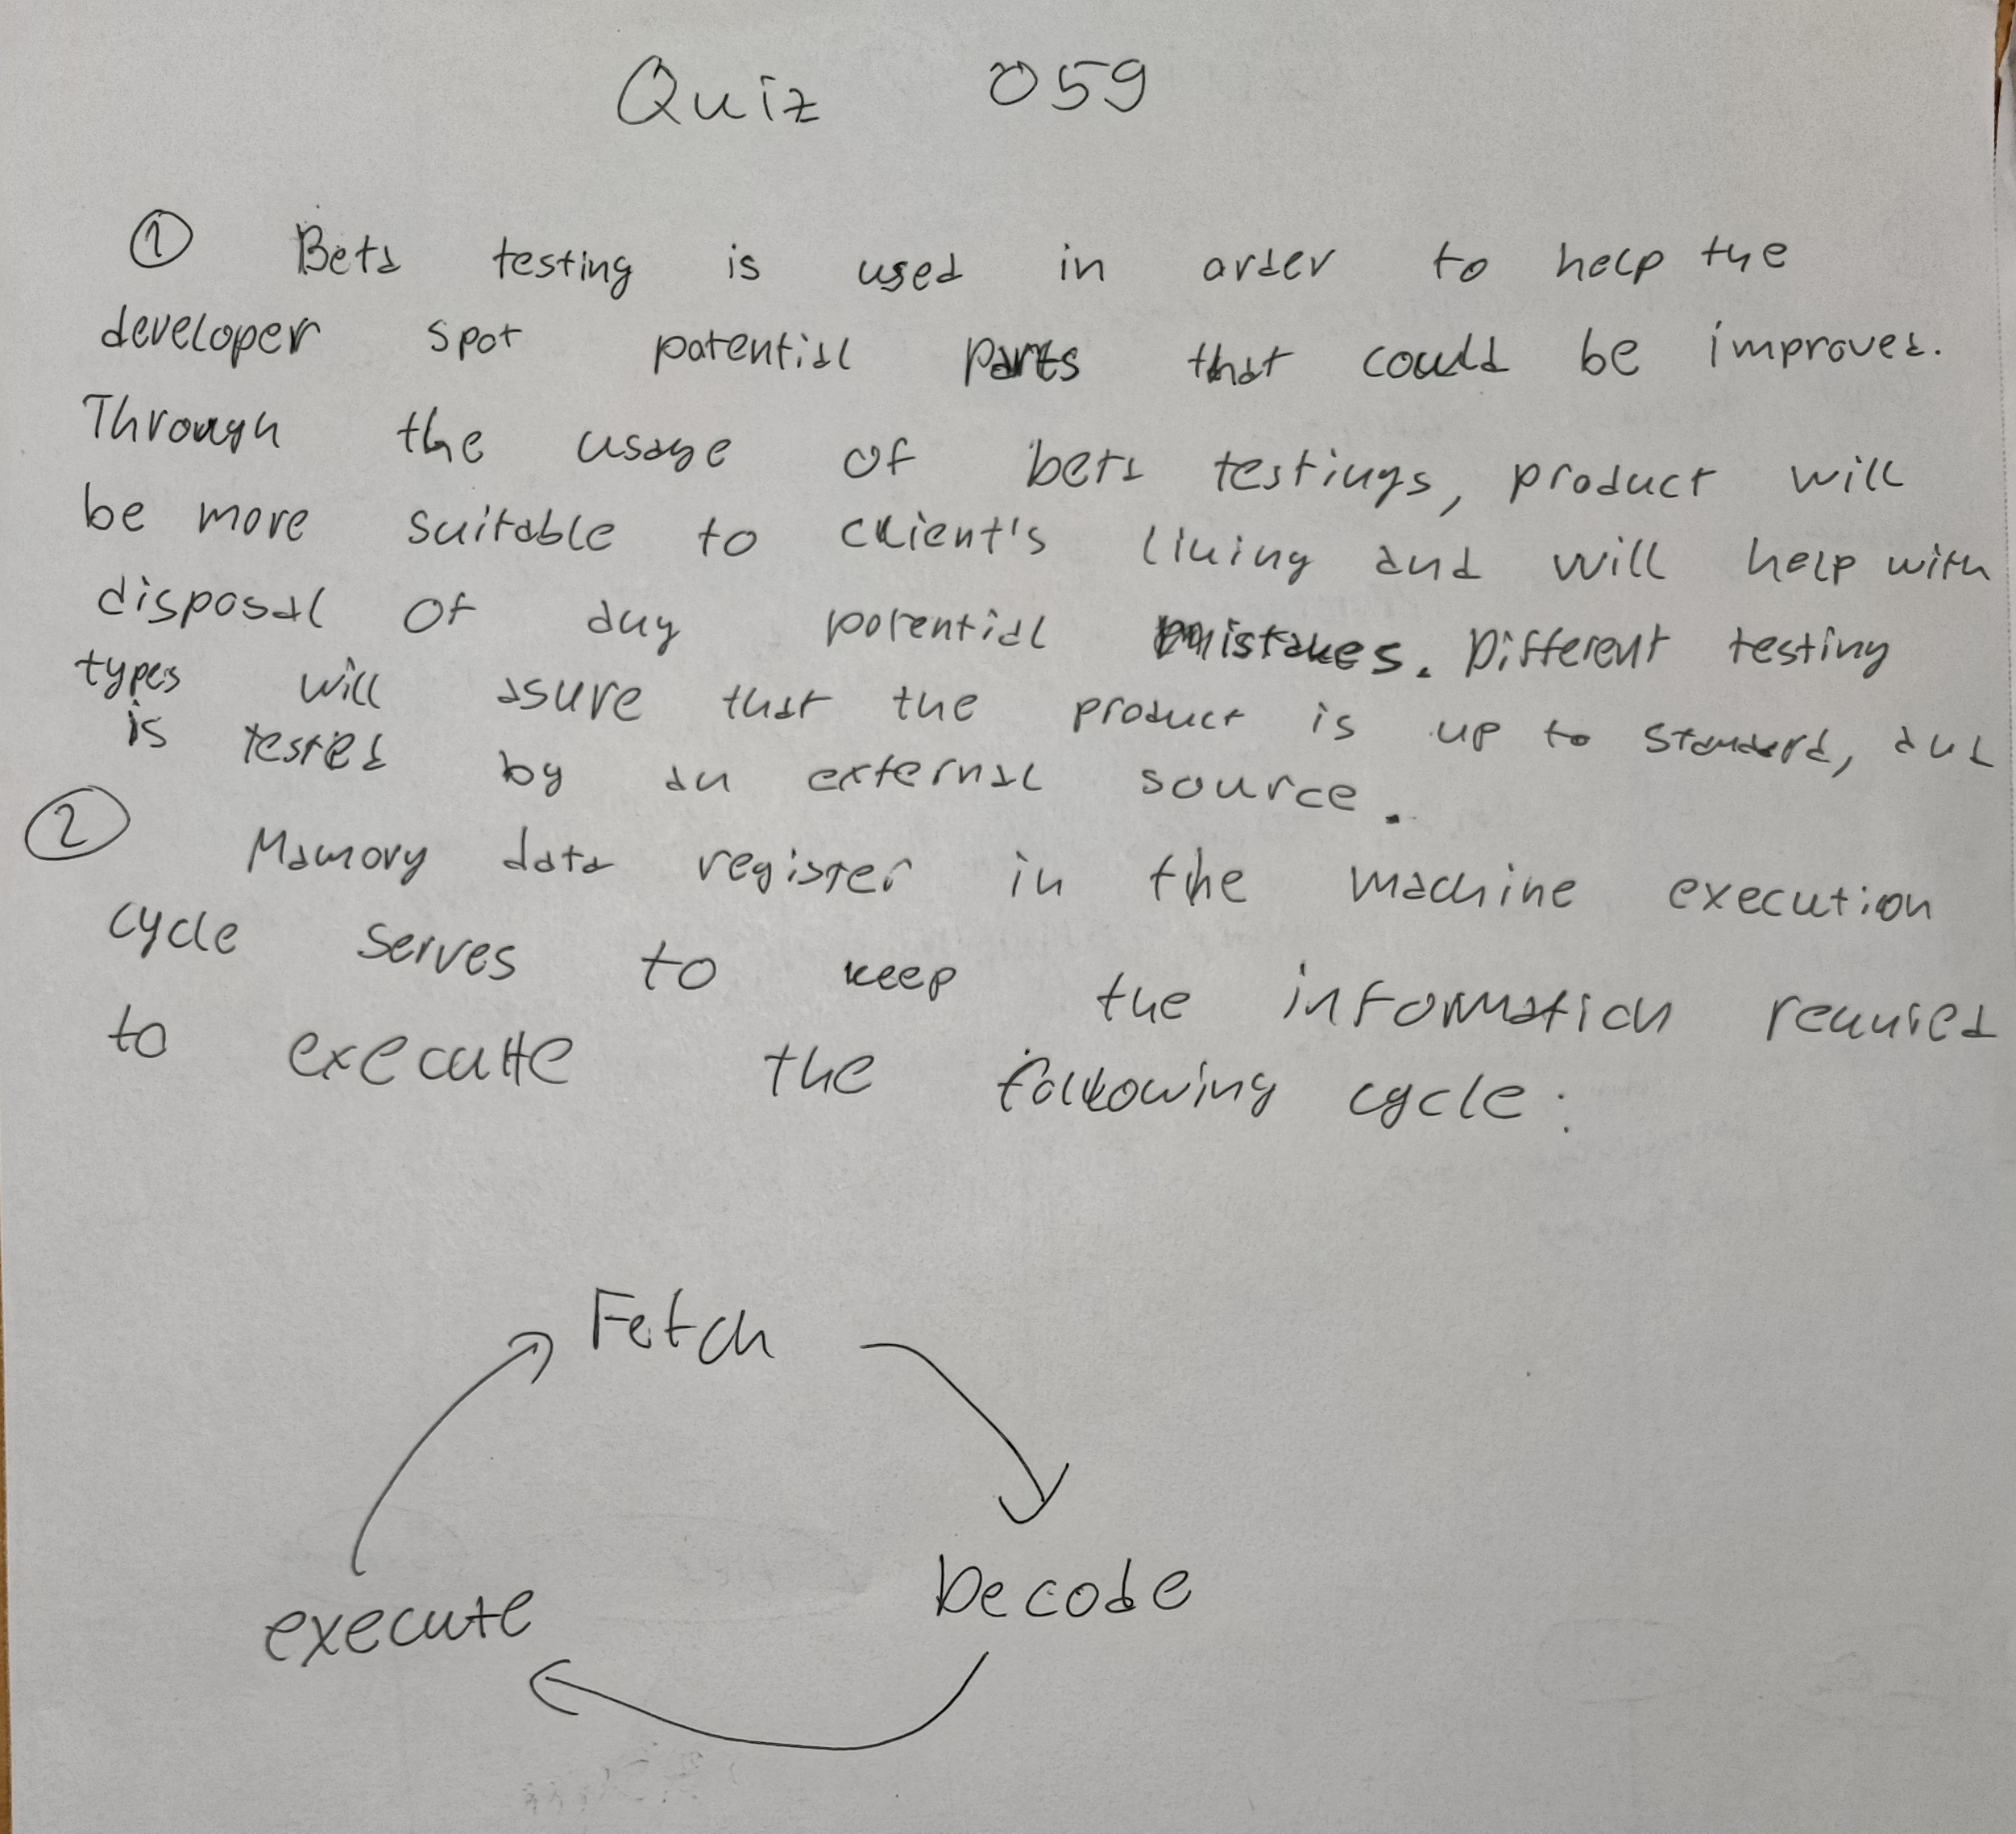 Quiz 059
① Beta testing is used in order to help the
developer spot potential parts that could be improved.
Through the usage of beta testings, product will
be more suitable to client's liking and will help with
disposal of any potential mistakes. Different testing
types will asure that the product is up to standard, and
is tested by an external source.
② Mamory data register in the machine execution
cycle serves to keep the information required
to execute the following cycle:
Fetch
Decode
execute